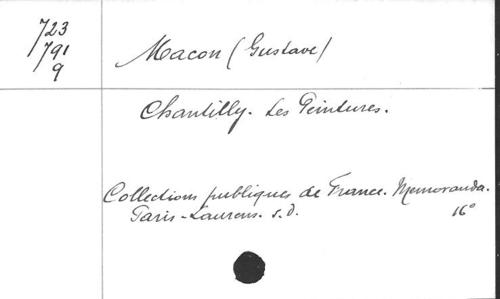 723
791
9
Macon (Gustave)
Chantilly. Les Peintures.
Collections publiques de France. Memoranda.
Paris - Laurens. s.d. 16°